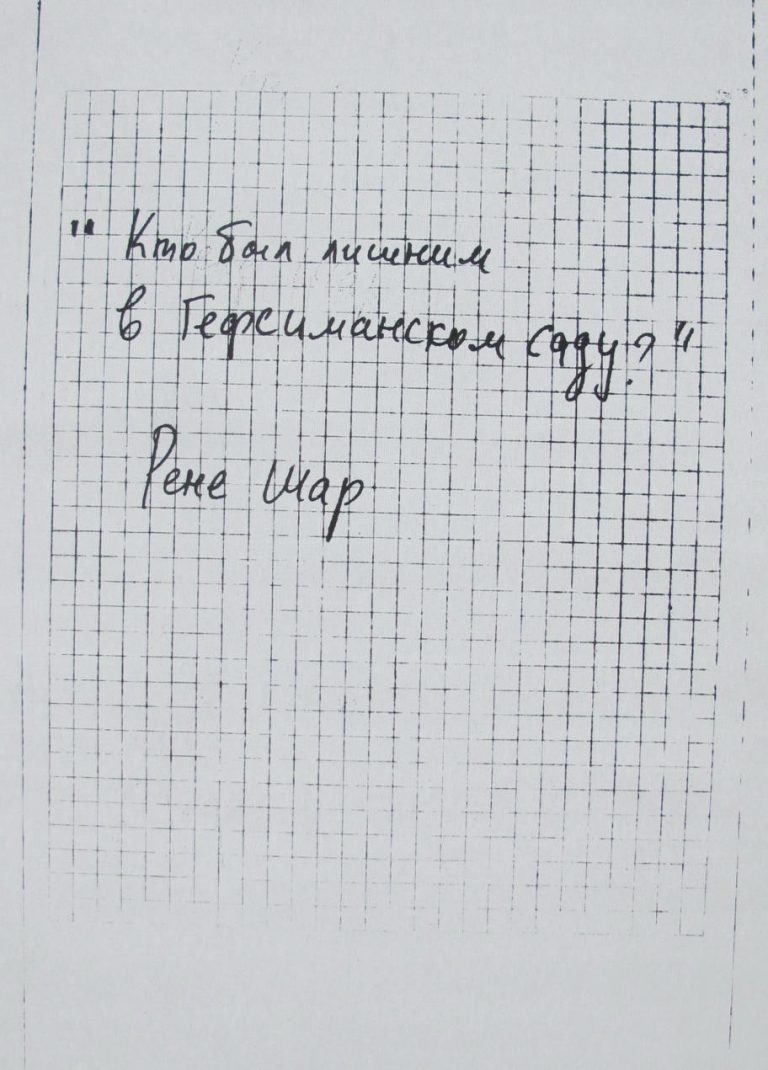 "Кто был лишним
в Гефсиманском саду?"
Рене Шар